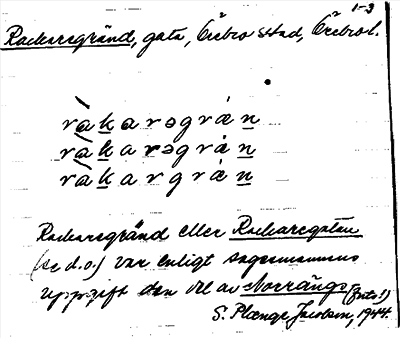 1-3
Rackaregränd, gata, Örebro stad, Örebro l.
rakarəgrän
rakarəgrän
rakargrän
Rackaregränd eller Rackaregatan
(se d.o.) var enligt sagesmannens
uppgift den del av Norrängs
S. Plænge Jacobson, 1944.